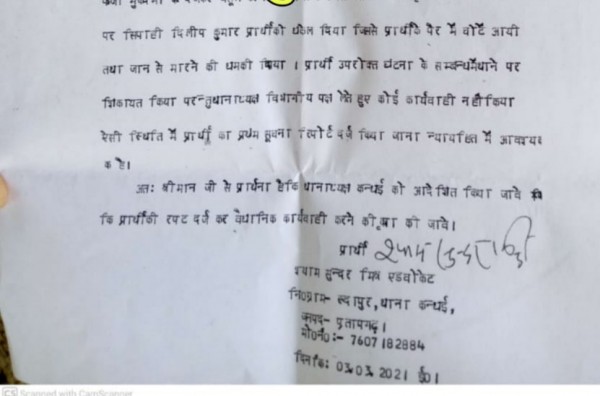 पर सिपाही दिलीप कुमार प्रार्थीको धकेल दिया जिससे प्रार्थीके पैर में चोटें आयी
तथा जान से मारने की धमकी दिया । प्रार्थी उपरोक्त घटना के सम्बन्धमेंथाने पर
शिकायत किया परन्तुथानाध्यक्ष विधानीय पक्ष लेते हुए कोई कार्यवाही नहीकिया
ऐसी स्थिति में प्रार्थी का प्रथम सूचना रिपोर्ट दर्ज किया जाना न्यायहित में आवश्य
क है।
अतः श्रीमान जी से प्रार्थना हैकि थानाध्यक्ष कन्धई को आदेशित किया जावे
कि प्रार्थीकी रपट दर्ज कर वैधानिक कार्यवाही करने की कृपा की जावे।
प्रार्थी
श्याम सुन्दर मिश्र एडवोकेट
नि0ग्राम- रूदापुर, थाना कन्धई,
जनपद- प्रतापगढ़।
मो0नं0:- 7607182884
दिनांक: 03.03.2021 ई0।
CS Scanned with CamScanner